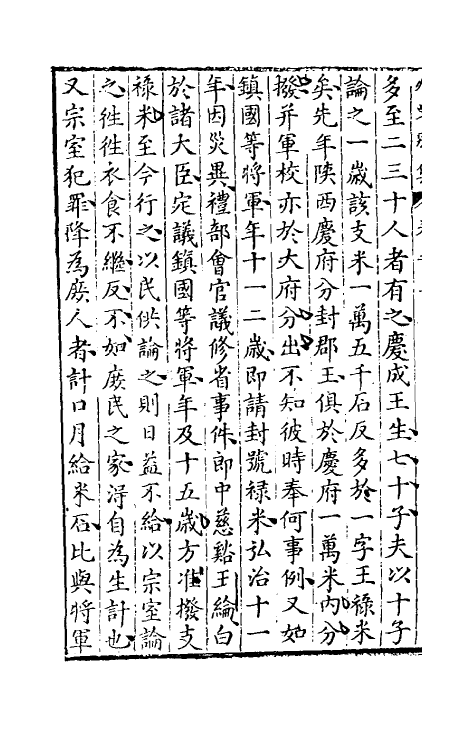 多至二三十人者有之慶成王生七十子夫以十子
論之一歲該支米一萬五千石反多於一字王祿米
矣先年陝西慶府分封郡王俱於慶府一萬米內分
撥并軍校亦於大府分出不知彼時奉何事例又如
鎮國等將軍年十一二歲即請封號祿米弘治十一
年因災異禮部會官議修省事件郎中慈谿王綸白
於諸大臣定議鎮國等將軍年及十五歲方准撥支
祿米至今行之以民供論之則日益不給以宗室論
之徃徃衣食不繼反不如庶民之家淂自為生計也
又宗室犯罪降為庶人者計口月給米石比與將軍